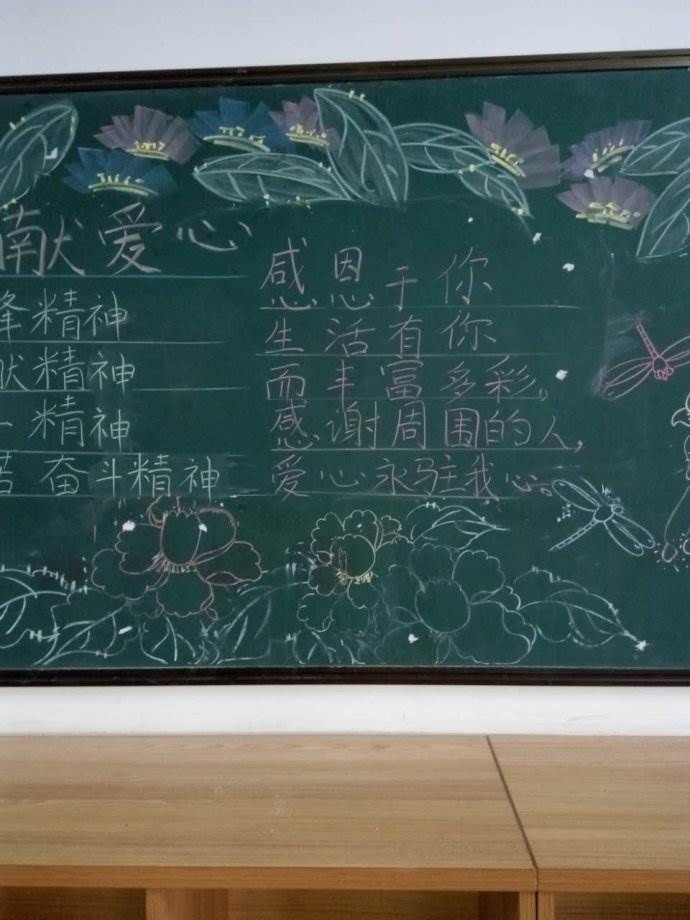 献爱心
精神
精神
精神
奋斗精神
感恩于你
生活有你
而丰富多彩,
感谢周围的人,
爱心永驻我心。